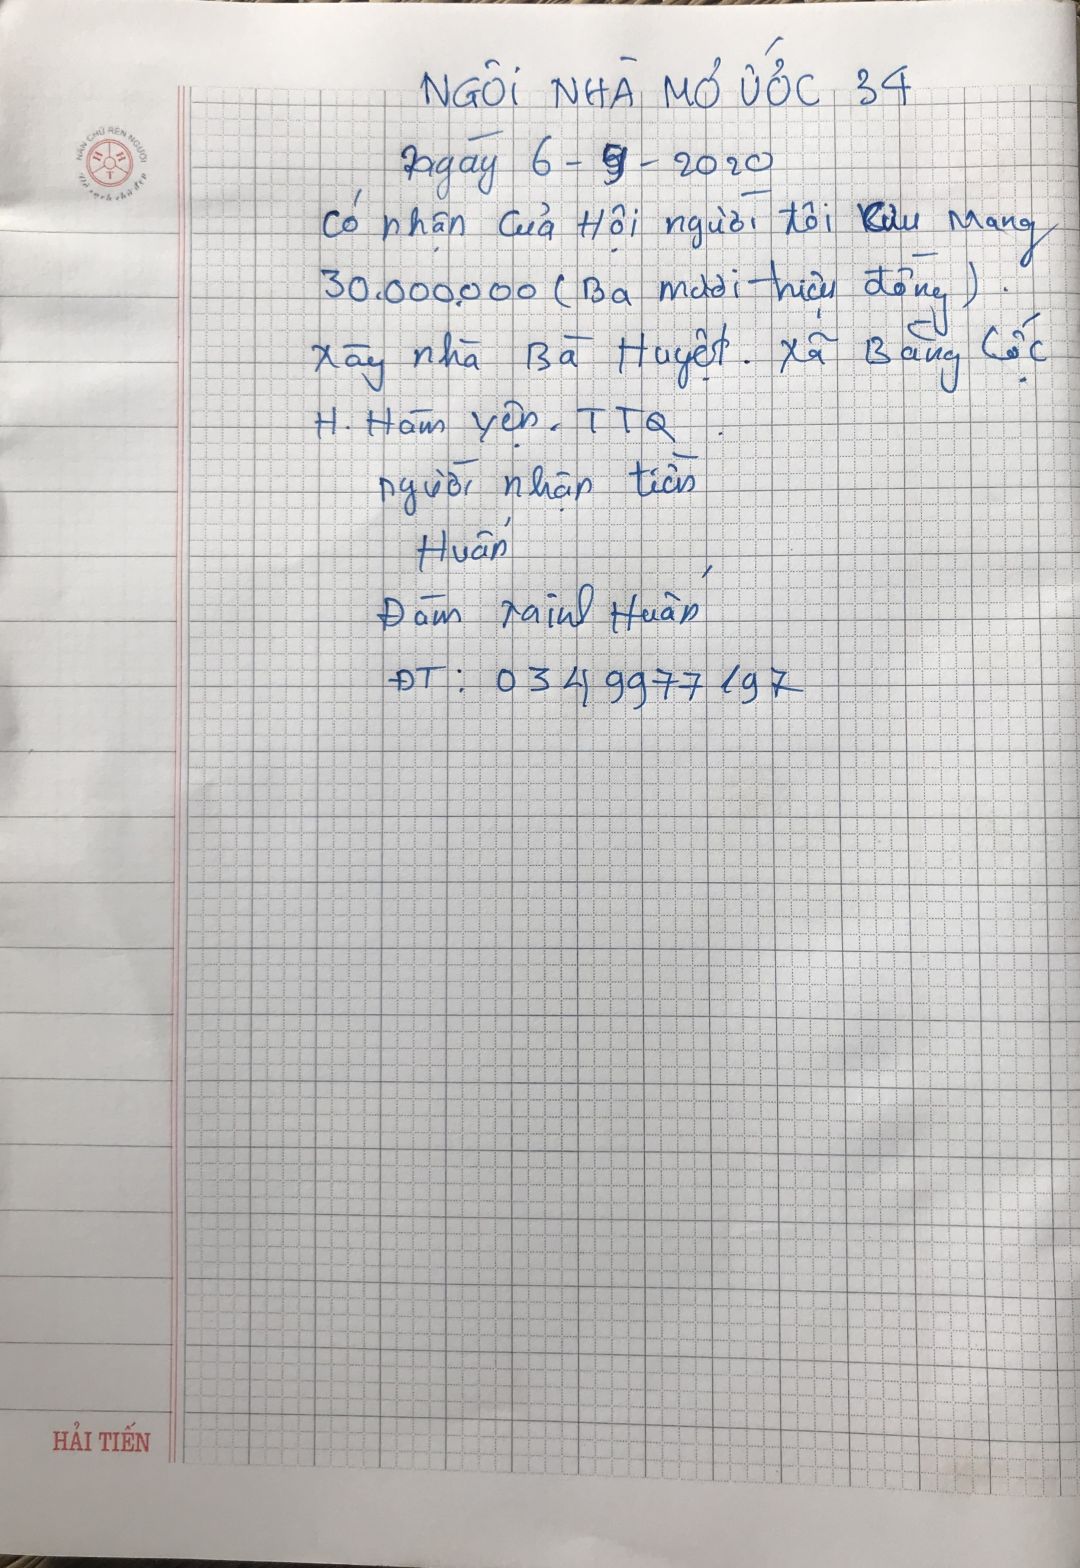 NGÔI NHÀ MƠ ƯỚC 34
NẮN CHỮ RÈN NGƯỜI
H H T
Vở sạch chữ đẹp
Ngày 6 - 9 - 2020
Có nhận của Hội người tôi cưu mang
30.000.000 (Ba mươi triệu đồng).
Xây nhà Bà Huyệt. Xã Bằng Cốc
H. Hàm Yên. TTQ.
người nhận tiền
Huấn
Đàm Huấn
ĐT: 0349977197
HẢI TIẾN